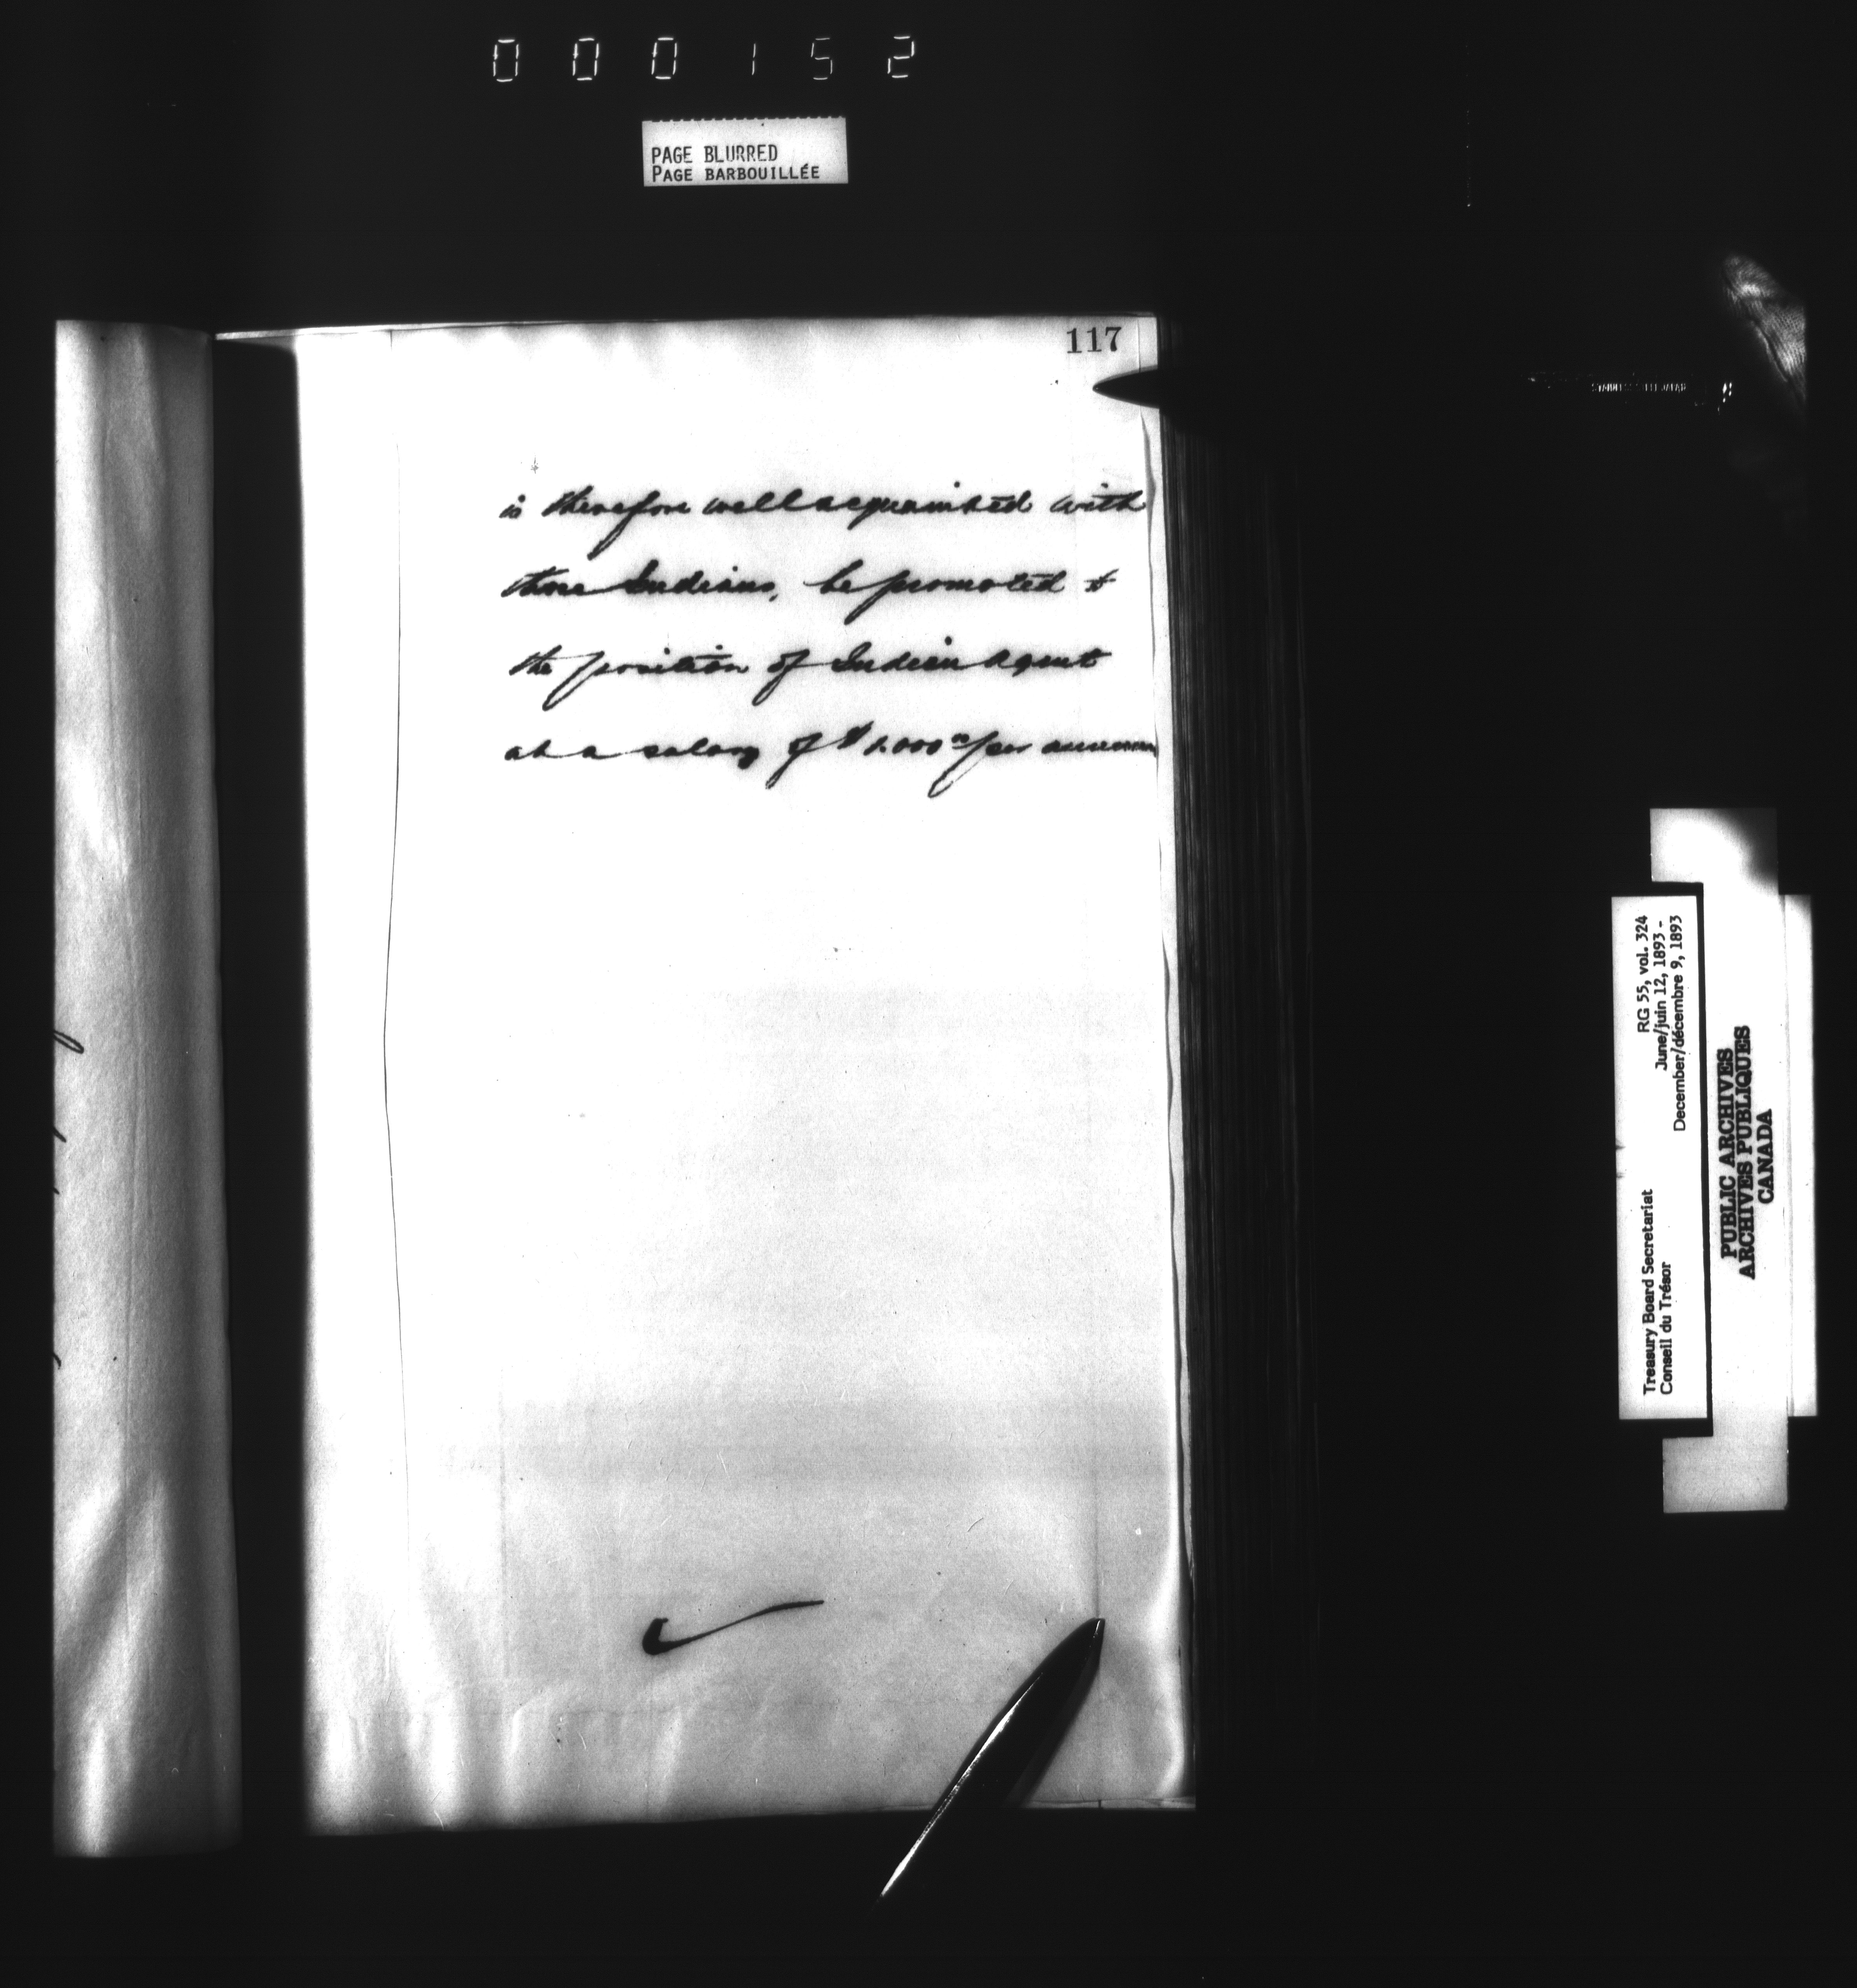 000152
PAGE BLURRED
PAGE BARBOUILLÉE
117
is therefore well acquainted with
those Indians, be promoted to
the position of Indian Agent
at a salary of $1.000 00 per annum
RG 55, vol. 324
June/juin 12, 1893 -
December/décembre 9, 1893
Treasury Board Secretariat
Conseil du Trésor
PUBLIC ARCHIVES
ARCHIVES PUBLIQUES
CANADA